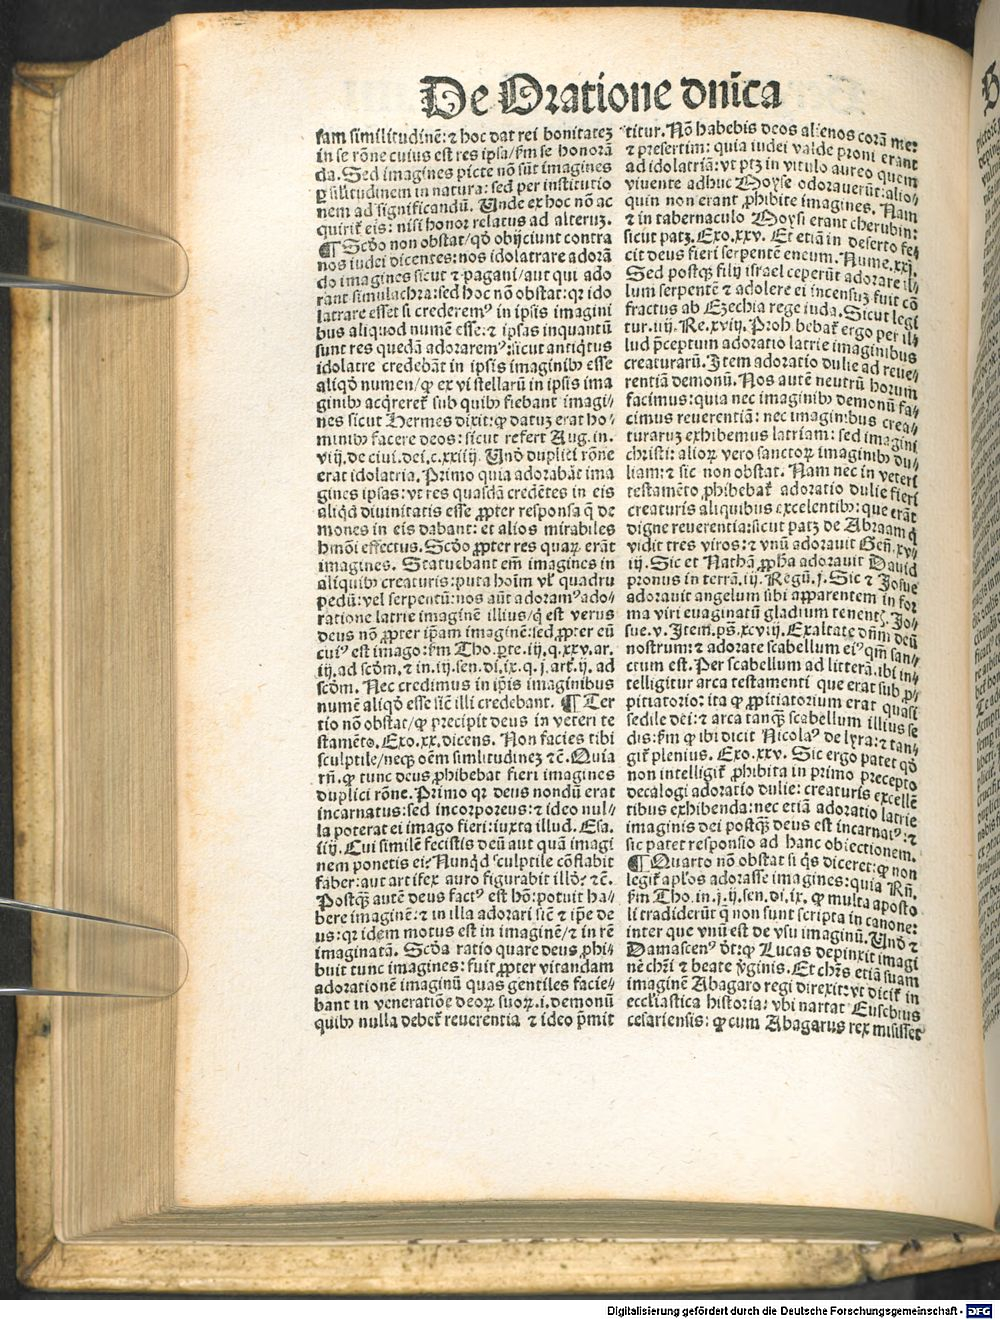 De Oratione dn̄ica
sam similitudinē: ⁊ hoc dat rei bonitateȝ
in se rōne cuius est res ipsa / fm se honorā
da. Sed imagines picte nō sūt imagines
ꝑ sīlitudinem in natura: sed per institutio
nem ad significandū. Unde ex hoc nō ac
quirit̄ eis: nisi honor relatus ad alteruȝ.
¶ Scōo non obstat / qō obijciunt contra
nos iudei dicentes: nos idolatrare adorā
do imagines sicut ⁊ pagani / aut qui ado
rant simulachra: sed hoc nō obstat: qꝛ ido
latrare esset si crederemꝰ in ipsis imagini
bus aliquod numē esse: ⁊ ipsas inquantū
sunt res quedā adoraremꝰ: sicut antiqitus
idolatre credebāt in ipsis imaginibꝰ esse
aliqd̄ numen / ꝙ ex vi stellarū in ipsis ima
ginibꝰ acqreret̄ sub quibꝰ fiebant imagi⸗
nes sicut Hermes dixit: ꝙ datuȝ erat ho⸗
minibꝰ facere deos: sicut refert Aug. in.
viij. de ciui. dei. c. xxiiij. Unō duplici rōne
erat idolatria. Primo quia adorabāt ima
gines ipsas: vt res quasdā credētes in eis
aliqd̄ diuinitatis esse ꝓpter responsa q̄ de
mones in eis dabant: et alios mirabiles
hmōi effectus. Scōo ꝓpter res quaꝝ erāt
imagines. Statuebant em̄ imagines in
aliquibꝰ creaturis: puta hoīm vl̄ quadru
pedū: vel serpentū: nos aūt adoramꝰ ado⸗
ratione latrie imaginē illius / q̄ est verus
deus nō ꝓpter ip̄am imaginē: sed ꝓpter eū
cuiꝰ est imago: fm Tho. ꝑte. iij. q. xxv. ar.
iij. ad scōm. ⁊ in. iij. sen. di. ix. q. j. art. ij. ad
scōm. Nec credimus in ip̄is imaginibus
numē aliqd̄ esse sic̄ illi credebant. ¶ Ter
tio nō obstat / ꝙ precipit deus in veteri te
stamēto. Exo. xx. dicens. Non facies tibi
sculptile / neqꝫ oēm similitudineȝ ⁊c̄. Quia
rn̄. ꝙ tunc deus ꝓhibebat fieri imagines
duplici rōne. Primo qꝛ deus nondū erat
incarnatus: sed incorporeus: ⁊ ideo nul⸗
la poterat ei imago fieri: iuxta illud. Esa.
iiij. Cui similē fecistis deū aut quā imagi
nem ponetis ei? Nunqd̄ sculptile cōflabit
faber: aut artifex auro figurabit illō? ⁊c̄.
Postqꝫ̄ autē deus factꝰ est hō: potuit ha⸗
bere imaginē: ⁊ in illa adorari sic̄ ⁊ ip̄e de
us: qꝛ idem motus est in imaginē / ⁊ in rē
imaginatā. Scōa ratio quare deus ꝓhi⸗
buit tunc imagines: fuit ꝓpter vitandam
adorationē imaginū quas gentiles facie⸗
bant in veneratiōe deoꝝ suoꝝ. i. demonū
quibꝰ nulla debet̄ reuerentia ⁊ ideo p̄mit
titur. Nō habebis deos alienos corā me:
⁊ presertim: quia iudei valde proni erant
ad idolatriā: vt ptȝ in vitulo aureo quem
viuente adhuc Moyse odorauerūt: alio⸗
quin non erant ꝓhibite imagines. Nam
⁊ in tabernaculo Moysi erant cherubin:
sicut patȝ. Exo. xxv. Et etiā in deserto fe⸗
cit deus fieri serpentē eneum. Nume. xxj.
Sed postqꝫ̄ filij israel ceperūt adorare il⸗
lum serpentē ⁊ adolere ei incensuȝ fuit cō
fractus ab Ezechia rege iuda. Sicut legi
tur. iiij. Re. xviij. Prohibebat̄ ergo per il⸗
lud p̄ceptum adoratio latrie imaginibus
creaturarū. Item adoratio dulie ad reue⸗
rentiā demonū. Nos autē neutrū horum
facimus: quia nec imaginibꝰ demonū fa⸗
cimus reuerentiā: nec imaginibus crea⸗
turaruȝ exhibemus latriam: sed imagini
christi: alioꝝ vero sanctoꝝ imaginibꝰ du⸗
liam: ⁊ sic non obstat. Nam nec in veteri
testamēto ꝓhibebat̄ adoratio dulie fieri
creaturis aliquibus excelentibꝰ: que erāt
digne reuerentia: sicut patȝ de Abraam q̄
vidit tres viros: ⁊ vnū adorauit Gen̄. xv⸗
iij. Sic et Nathā ꝓpha adorauit Dauid
pronus in terrā. iij. Regū. j. Sic ⁊ Josue
adorauit angelum sibi apparentem in for
ma viri euaginatū gladium tenent⸗. Jo⸗
sue. v. Item. ps̄. xcviij. Exaltate dn̄m deū
nostrum: ⁊ adorate scabellum eiꝰ qm̄ san⸗
ctum est. Per scabellum ad litterā. ibi in⸗
telligitur arca testamenti que erat sub ꝓ⸗
pitiatorio: ita ꝙ ꝓpitiatorium erat quasi
sedile dei: ⁊ arca tanqꝫ̄ scabellum illius se
dis: fm ꝙ ibi dicit Nicolaꝰ de lyra: ⁊ tan⸗
git̄ plenius. Exo. xxv. Sic ergo patet qō
non intelligit̄ ꝓhibita in primo precepto
decalogi adoratio dulie: creaturis excellē
tibus exhibenda: nec etiā adoratio latrie
imaginis dei postqꝫ̄ deus est incarnatꝰ: ⁊
sic patet responsio ad hanc obiectionem.
¶ Quarto nō obstat si qs̄ diceret: ꝙ non
legit̄ apl̄os adorasse imagines: quia Rn̄.
fm Tho. in. j. ij. sen. di. ix. ꝙ multa aposto
li tradiderūt q̄ non sunt scripta in canone:
inter que vnū est de vsu imaginū. Unō ⁊
Damascenꝰ dt̄: ꝙ Lucas depinxit imagi
nē chr̄i ⁊ beate v̄ginis. Et chr̄s etiā suam
imaginē Abagaro regi direxit: vt dicit̄ in
ecclesiastica historia: vbi nartat Eusebius
cesariensis: ꝙ cum Abagarus rex misisset
Digitalisierung gefördert durch die Deutsche Forschungsgemeinschaft - DFG